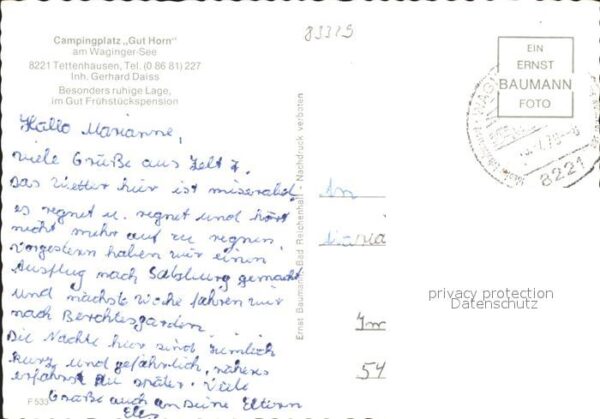 83325
Campingplatz „Gut Horn"
am Waginger-See
8221 Tettenhausen, Tel. (0 86 81) 227
Inh. Gerhard Daiss
Besonders ruhige Lage,
im Gut Frühstückspension
EIN
ERNST
BAUMANN
FOTO
8221
Hallo Marianne,
viele Grüße aus Zelt 7.
Das Wetter hier ist miserabel,
es regnet u. regnet und hört
nicht mehr auf zu regnen.
Vorgestern haben wir einen
Ausflug nach Salzburg gemacht
und nächste Woche fahren wir
nach Berchtesgarden.
Die Nächte hier sind ziemlich
kurz und gefährlich, näheres
erfährst du später. Viele
Grüße auch an deine Eltern
F 533
Ernst Baumann Bad Reichenhall - Nachdruck verboten
An
Maria
Im
54
privacy protection
Datenschutz